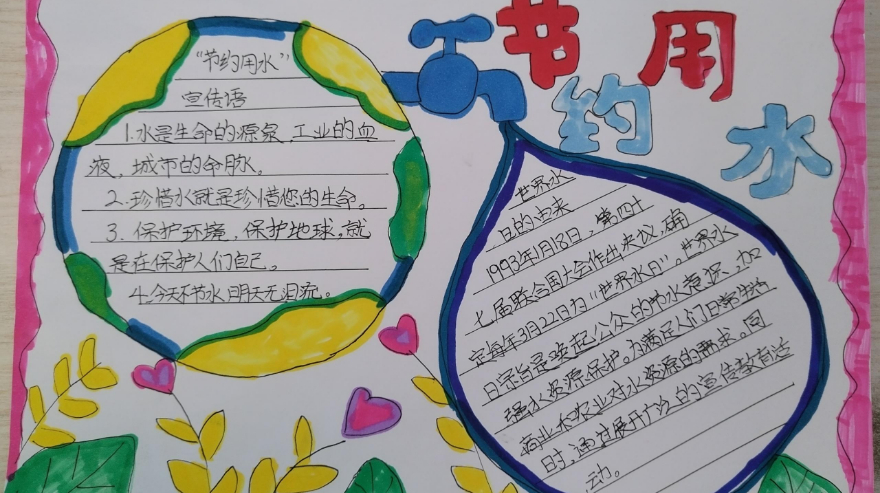 节约用水
“节约用水”
宣传语
1.水是生命的源泉、工业的血
液、城市的命脉。
2.珍惜水就是珍惜您的生命。
3.保护环境,保护地球,就
是在保护人们自己。
4.今天不节水明天无泪流。
世界水
日的由来
1993年1月18日,第四十
七届联合国大会作出决议,确
定每年3月22日为“世界水日”。世界水
日宗旨是唤起公众的节水意识,加
强水资源保护。为满足人们日常生活
商业和农业对水资源的需求。同
时,通过展开广泛的宣传教育活
动。